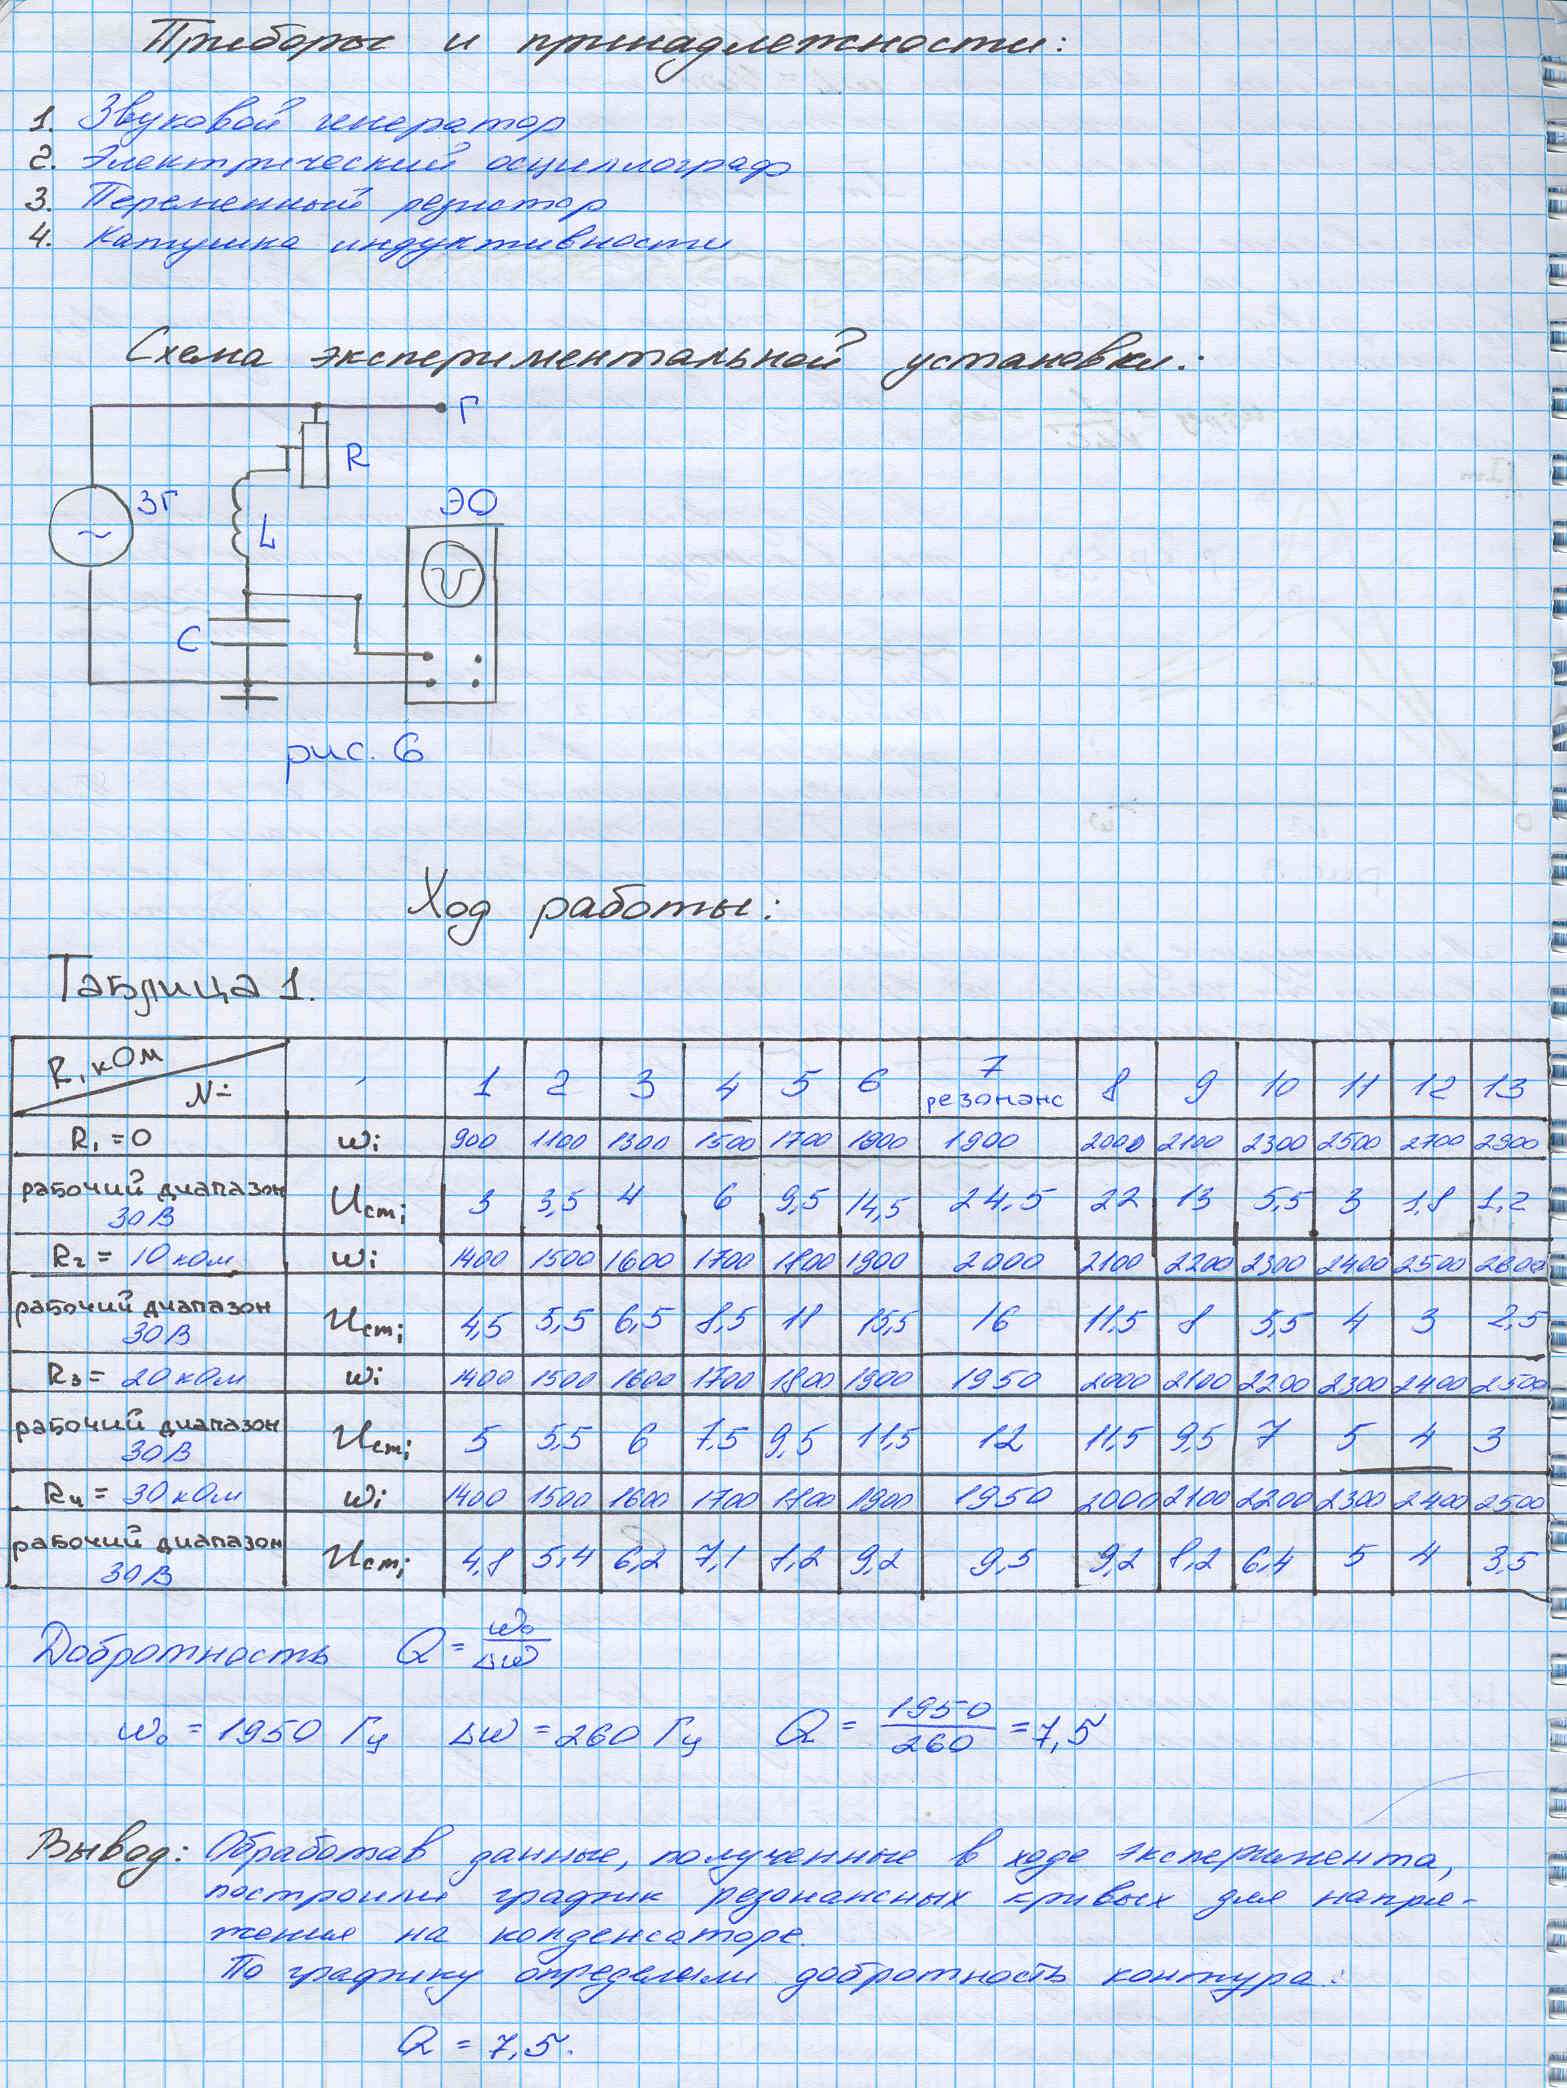 Приборы и принадлежности:
1. Звуковой генератор
2. Электрический осциллограф
3. Переменный резистор
4. Катушка индуктивности
Схема экспериментальной установки:
Г
R
ЗГ
ЭО
~
L
C
рис. 6
Ход работы:
Таблица 1.
R, кОм N: 1 2 3 4 5 6 7 резонанс 8 9 10 11 12 13
R₁ = 0 ωi 900 1100 1300 1500 1700 1800 1900 2000 2100 2300 2500 2700 2900
рабочий диапазон 30 В Ucmi 3 3,5 4 6 9,5 14,5 24,5 22 13 5,5 3 1,8 1,2
R₂ = 10 ком ωi 1400 1500 1600 1700 1800 1900 2000 2100 2200 2300 2400 2500 2600
рабочий диапазон 30 В Ucmi 4,5 5,5 6,5 8,5 11 15,5 16 11,5 8 5,5 4 3 2,5
R₃ = 20 кОм ωi 1400 1500 1600 1700 1800 1900 1950 2000 2100 2200 2300 2400 2500
рабочий диапазон 30 В Ucmi 5 5,5 6 7,5 9,5 11,5 12 11,5 9,5 7 5 4 3
R₄ = 30 кОм ωi 1400 1500 1600 1700 1800 1900 1950 2000 2100 2200 2300 2400 2500
рабочий диапазон 30 В Ucmi 4,8 5,4 6,2 7,1 8,2 9,2 9,5 9,2 8,2 6,4 5 4 3,5
Добротность Q = ω₀/Δω
ω₀ = 1950 Гц Δω = 260 Гц Q = 1950/260 = 7,5
Вывод: Обработав данные, полученные в ходе эксперимента,
построили график резонансных кривых для напря-
жения на конденсаторе.
По графику определили добротность контура:
Q = 7,5.